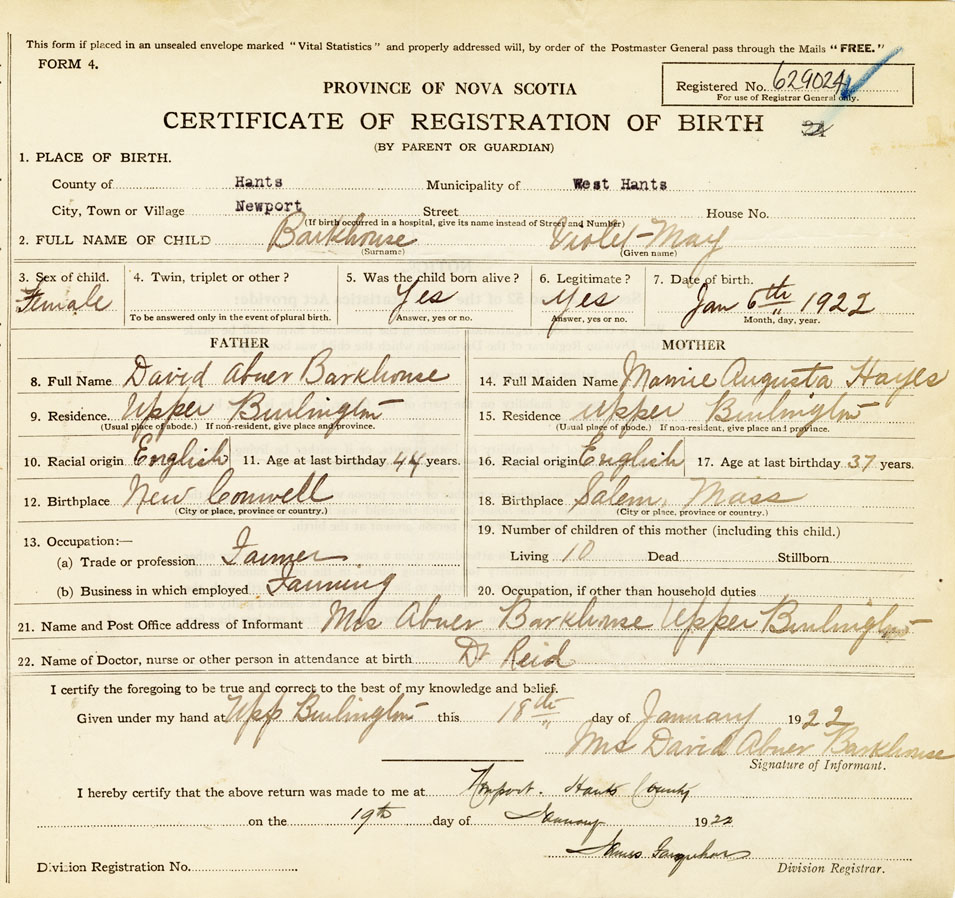 This form if placed in an unsealed envelope marked "Vital Statistics" and properly addressed will, by order of the Postmaster General pass through the Mails "FREE."
FORM 4.
Registered No. 629024
For use of Registrar General only.
PROVINCE OF NOVA SCOTIA
CERTIFICATE OF REGISTRATION OF BIRTH
(BY PARENT OR GUARDIAN)
1. PLACE OF BIRTH.
County of Hants Municipality of West Hants
City, Town or Village Newport Street House No.
(If birth occurred in a hospital, give its name instead of Street and Number)
2. FULL NAME OF CHILD Barkhouse Violet-May
(Surname) (Given name)
3. Sex of child. 4. Twin, triplet or other? 5. Was the child born alive? 6. Legitimate? 7. Date of birth.
Female Yes Yes Jan 6th 1922
To be answered only in the event of plural birth. Answer, yes or no. Answer, yes or no. Month, day, year.
FATHER MOTHER
8. Full Name David Abner Barkhouse 14. Full Maiden Name Mamie Augusta Hayes
9. Residence. Upper Burlington 15. Residence Upper Burlington
(Usual place of abode.) If non-resident, give place and province. (Usual place of abode.) If non-resident, give place and province.
10. Racial origin English 11. Age at last birthday 44 years. 16. Racial origin English 17. Age at last birthday 37 years.
12. Birthplace New Cornwell 18. Birthplace Salem, Mass
(City or place, province or country.) (City or place, province or country.)
19. Number of children of this mother (including this child.)
13. Occupation:—
(a) Trade or profession Farmer Living 10 Dead Stillborn
(b) Business in which employed Farming 20. Occupation, if other than household duties
21. Name and Post Office address of Informant Mrs Abner Barkhouse Upper Burlington
22. Name of Doctor, nurse or other person in attendance at birth Dr Reid
I certify the foregoing to be true and correct to the best of my knowledge and belief.
Given under my hand at Upp Burlington this 18th day of January 1922
Mrs David Abner Barkhouse
Signature of Informant.
I hereby certify that the above return was made to me at Newport. Hants County
on the 19th day of January 1922
James Farquhar
Division Registration No. Division Registrar.